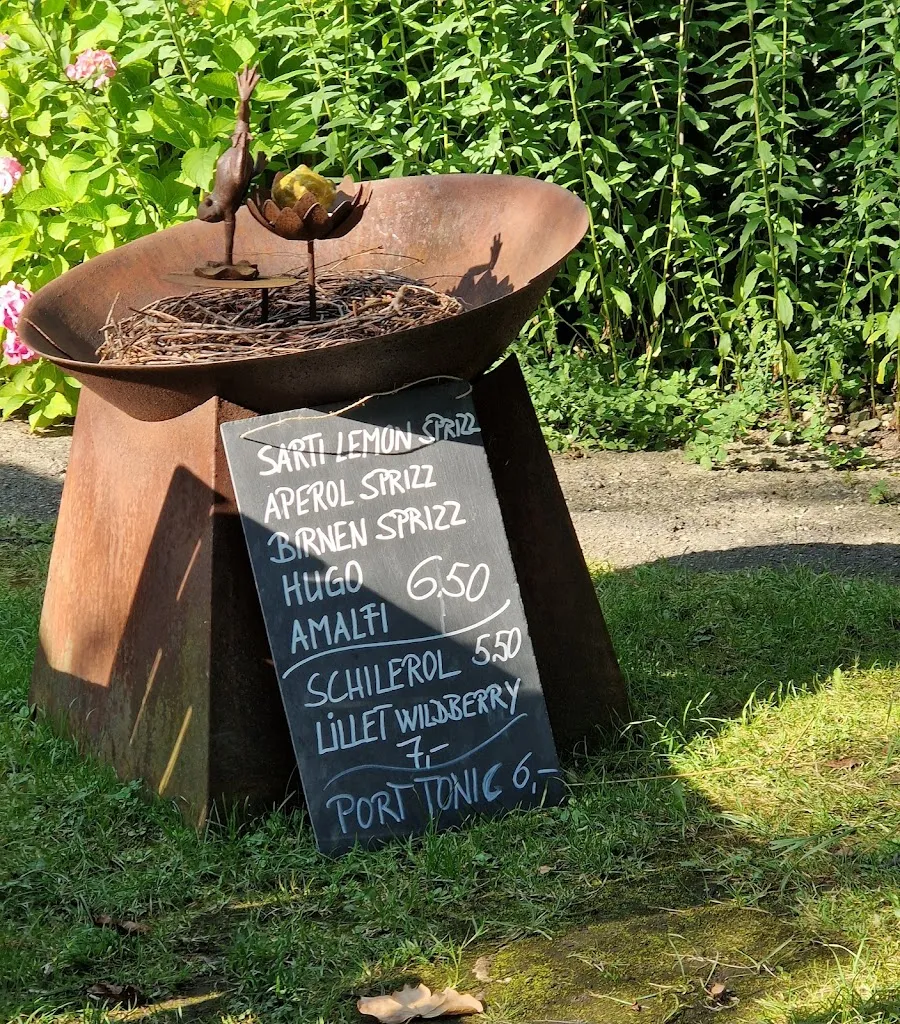 SARTI LEMON SPRIZZ
APEROL SPRIZZ
BIRNEN SPRIZZ
HUGO 6,50
AMALFI
SCHILEROL 5,50
LILLET WILDBERRY
7,-
PORT TONIC 6,-